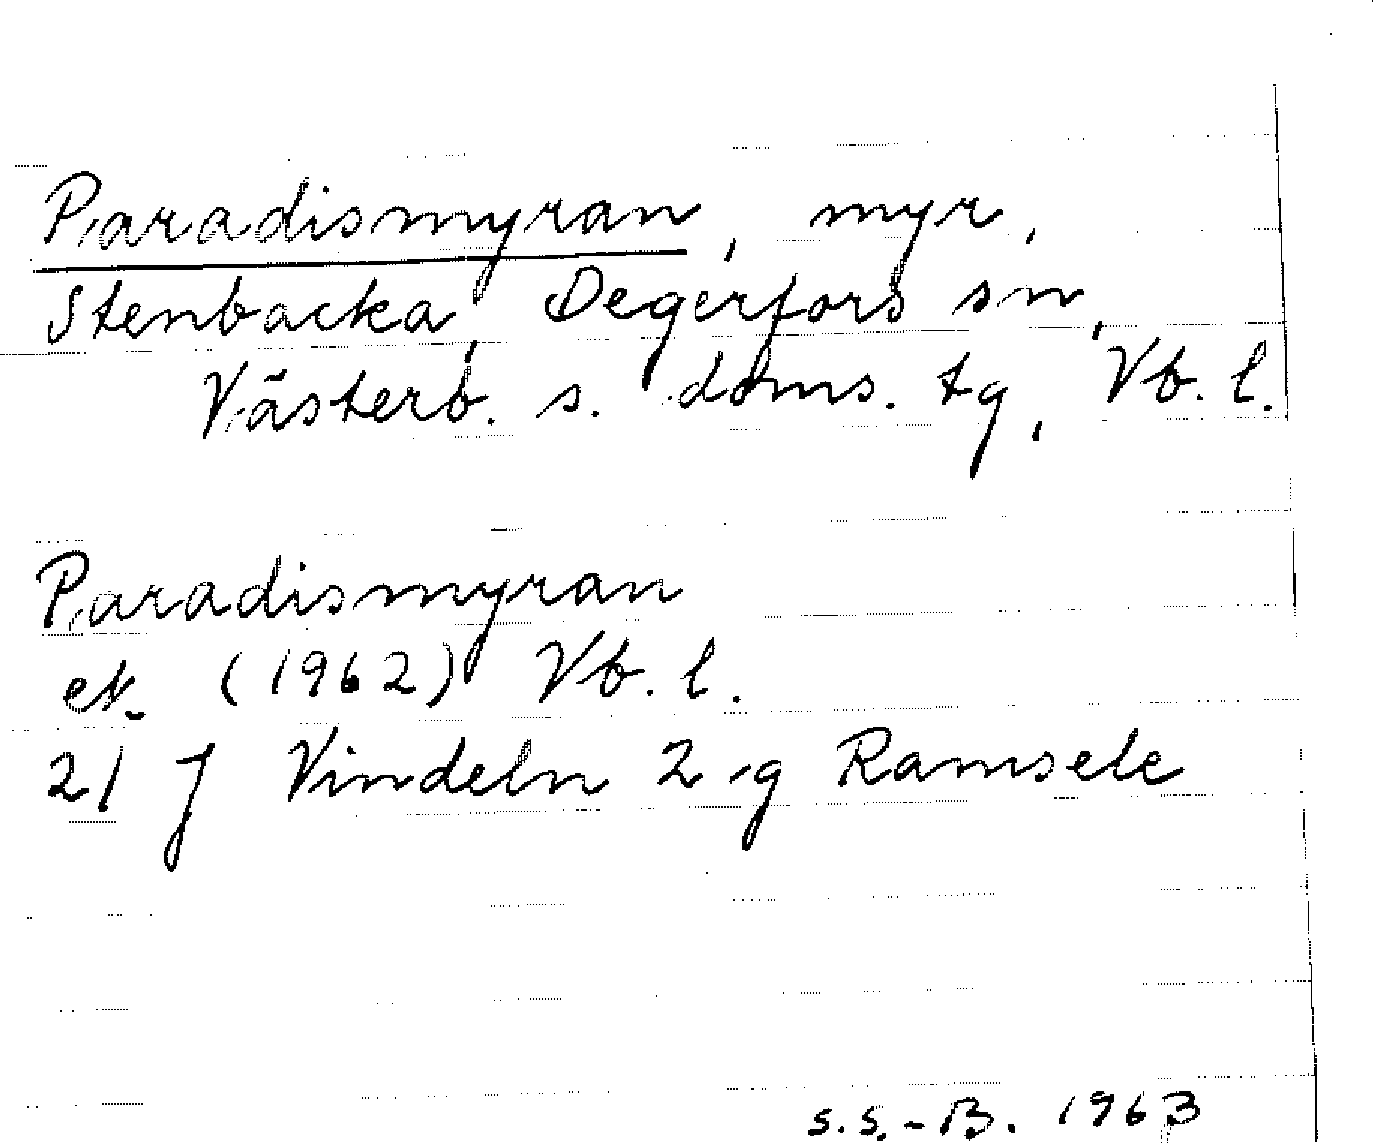 Paradismyran, myr,
Stenbacka, Degerfors sn,
Västerb. s. doms. tg, Vb. l.
Paradismyran
ek. (1962) Vb. l.
21 J Vindeln 2 g Ramsele
S.S.-B. 1963